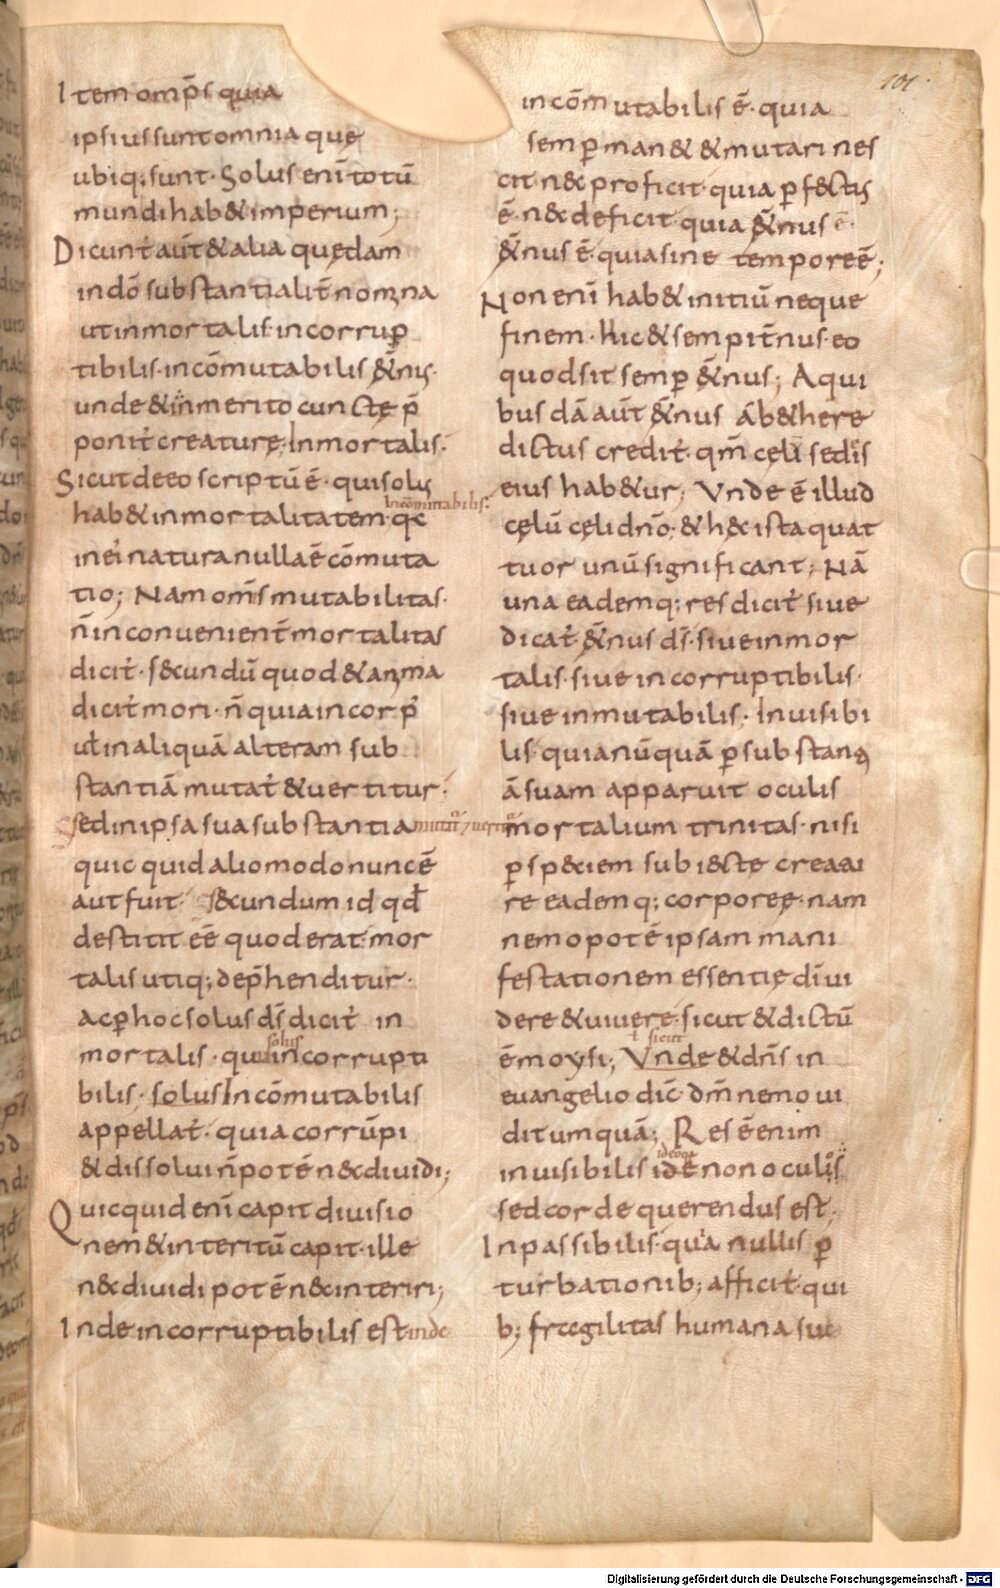 101
Item omp̄s quia
ipsius sunt omnia quę
ubiq; sunt. Solus enī totū
mundi hab& imperium;
Dicunt̄ aūt & alia quędam
in dō substantialit̄ nomina
ut inmortalis. incorrup
tibilis. incōmutabilis &̄nus.
unde & inmerito cunctę p̄
ponit̄ creaturę. Inmortalis.
Sicut de eo scriptū ē. qui solus
hab& inmortalitatem. qđ
incōmutabilis.
in ei natura nulla ē cōmuta
tio; Nam om̄s mutabilitas.
n̄ inconvenient̄ mortalitas
dicit̄. s&cundū quod & anima
dicit̄ mori. n̄ quia in corp̄
ut̄ in aliquā alteram sub
stantiā mutat̄ & vertitur.
sed in ipsa sua substantia
mutat̄ / vertit̄
quicquid alio modo nunc ē
aut fuit. s&cundum id qd̄
destitit eē quod erat. mor
talis utiq; dep̄henditur.
ac p̱ hoc solus d̄s dicit̄ in
mortalis. qui incorrupti
solus
bilis. solus Incōmutabilis
appellat̄. quia corrūpi
& dissolui n̄ potē n& diuidi;
Quicquid enī capit diuisio
nem & interitū capit. ille
n& diuidi potē n& interiri;
Inde incorruptibilis est inde
incōmutabilis ē. quia
semp̱ man& & mutari nes
cit. n& proficit. quia p̱f&ctus
ē. n& deficit quia &̄nus ē.
&̄nus ē. quia sine tempore ē;
Non enī hab& initiū neque
finem. hic & sempit̄nus. eo
quod sit semp̱ &̄nus; A qui
busdā aūt &̄nus ab &here
dictus credit̄. qm̄ cęli sedis
eius hab&ur; Vnde ē illud
cęlū cęli dn̄o; & h&c ista quat
tuor unū significant; Nā
una eademq; res dicit̄ siue
dicat̄ &̄nus d̄s. siue inmor
talis. siue incorruptibilis.
siue inmutabilis. Inuisibi
lis. quia nūquā p̱ substanti
ā suam apparuit oculis
mortalium trinitas. nisi
p̱ sp&iem subi&tę creatu
re eademq; corporeę. nam
nemo potē ipsam mani
festationem essentię diui
dere & uiuere. sicut & dictū
ł sicut
ē moysi; Vnde & dn̄s in
euangelio dic̄. dm̄ nemo ui
dit umquā; Res ē enim
inuisibilis idē non oculis
ideoq;
sed corde querendus est.
Inpassibilis. quia nullis p̱
turbationib; afficit̄. qui
b; fragilitas humana suc
Digitalisierung gefördert durch die Deutsche Forschungsgemeinschaft - DFG